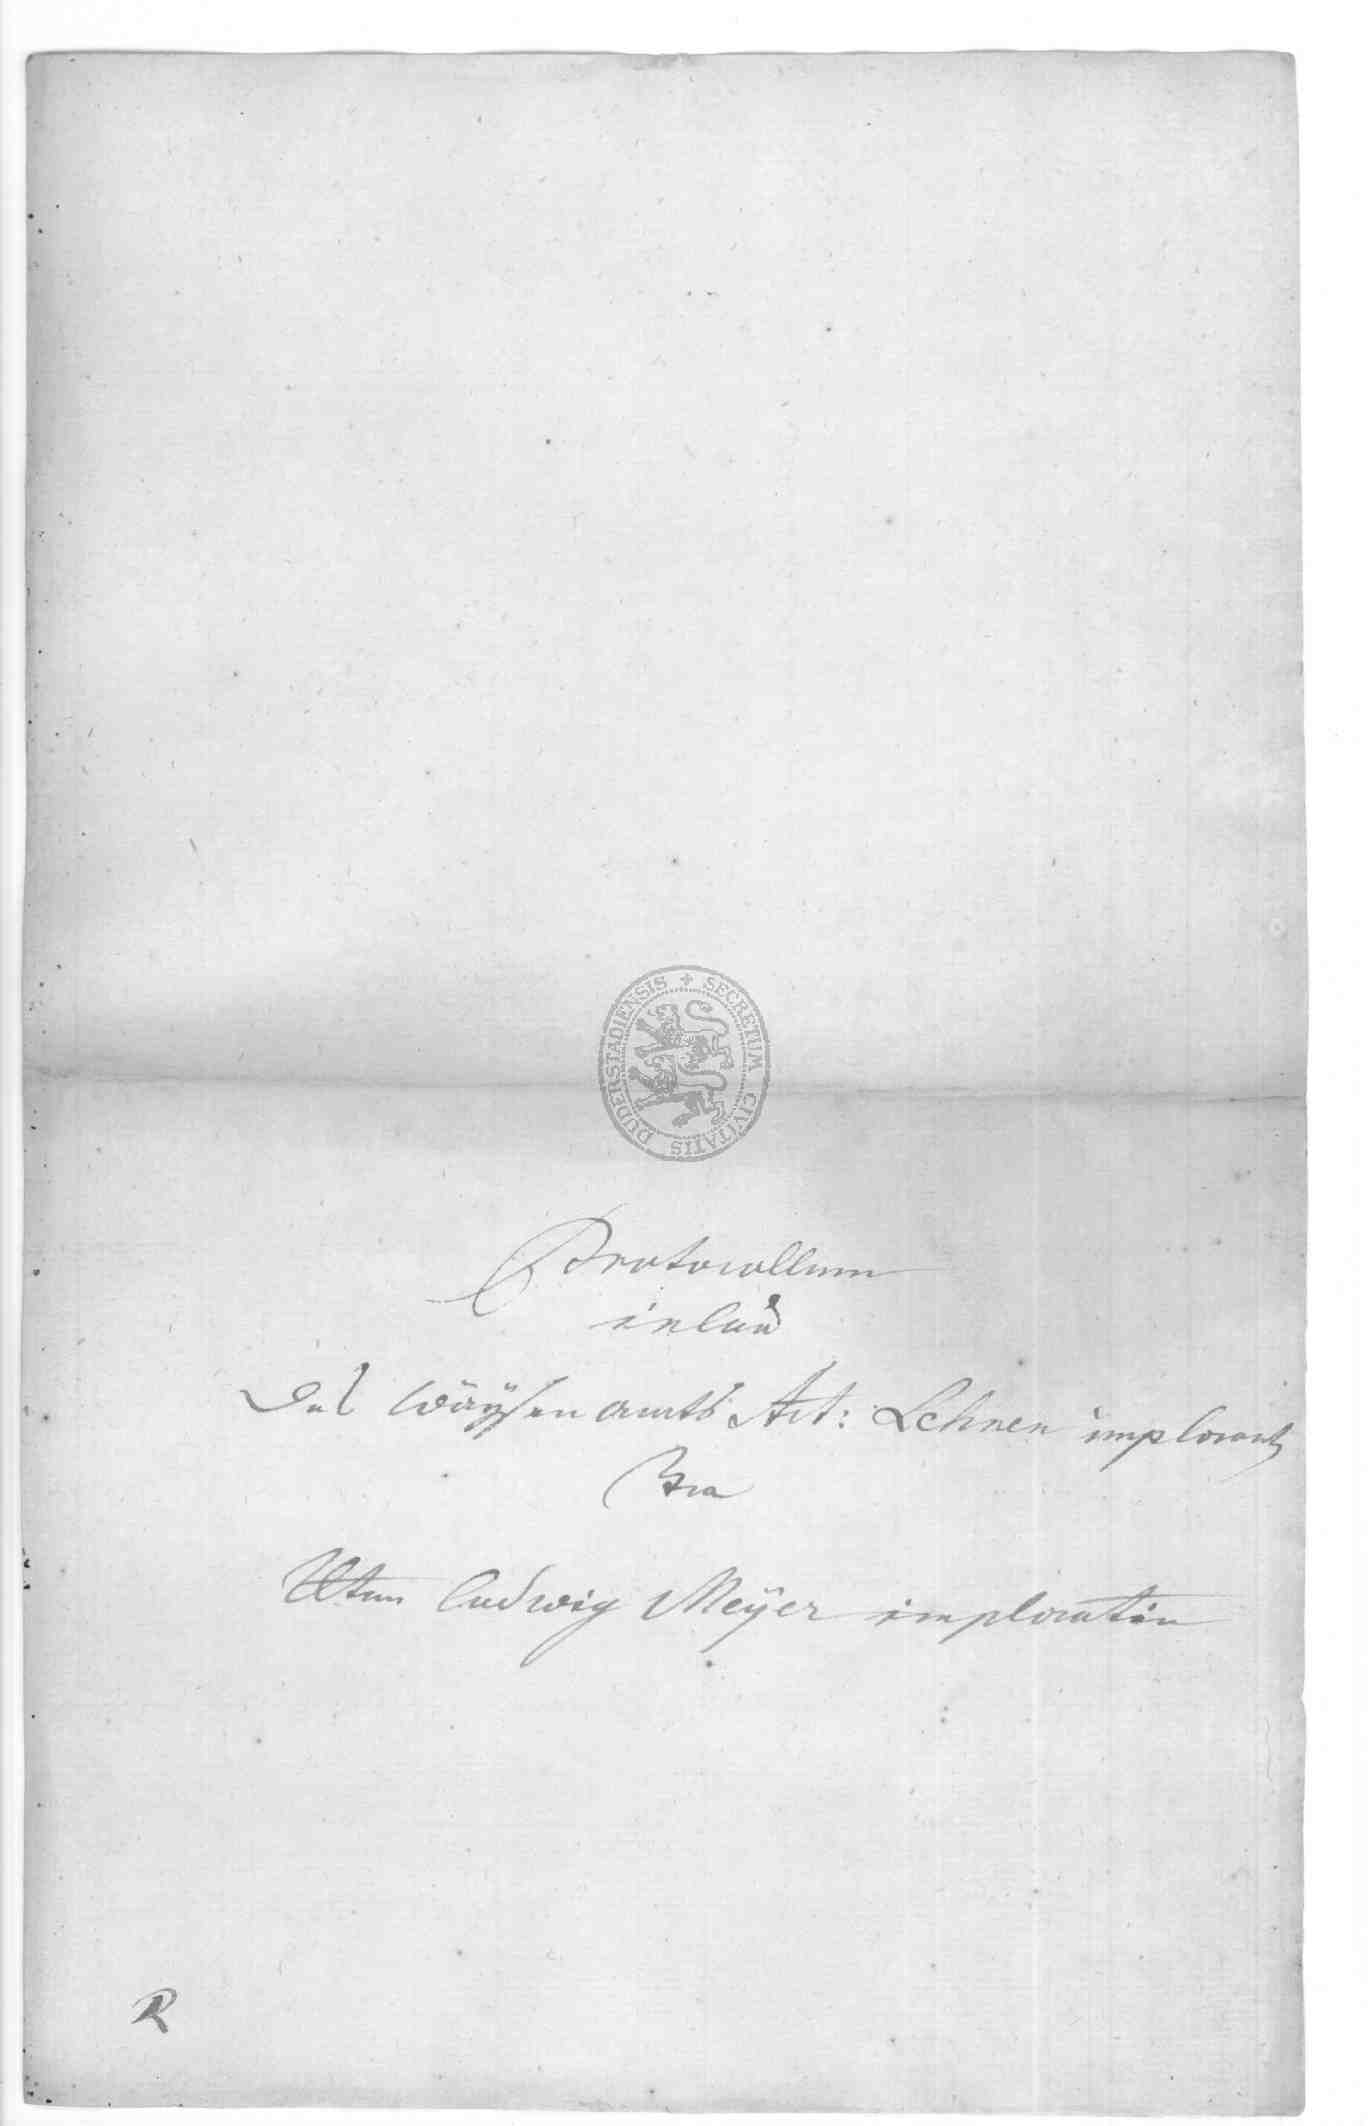 SECRETUM CIVITATIS DUDERSTADIENSIS
Protocollum
in cau
Des Wäÿsen amts Act: Lehnen implorant
Ctra
Ludwig Meÿer imploratin
R